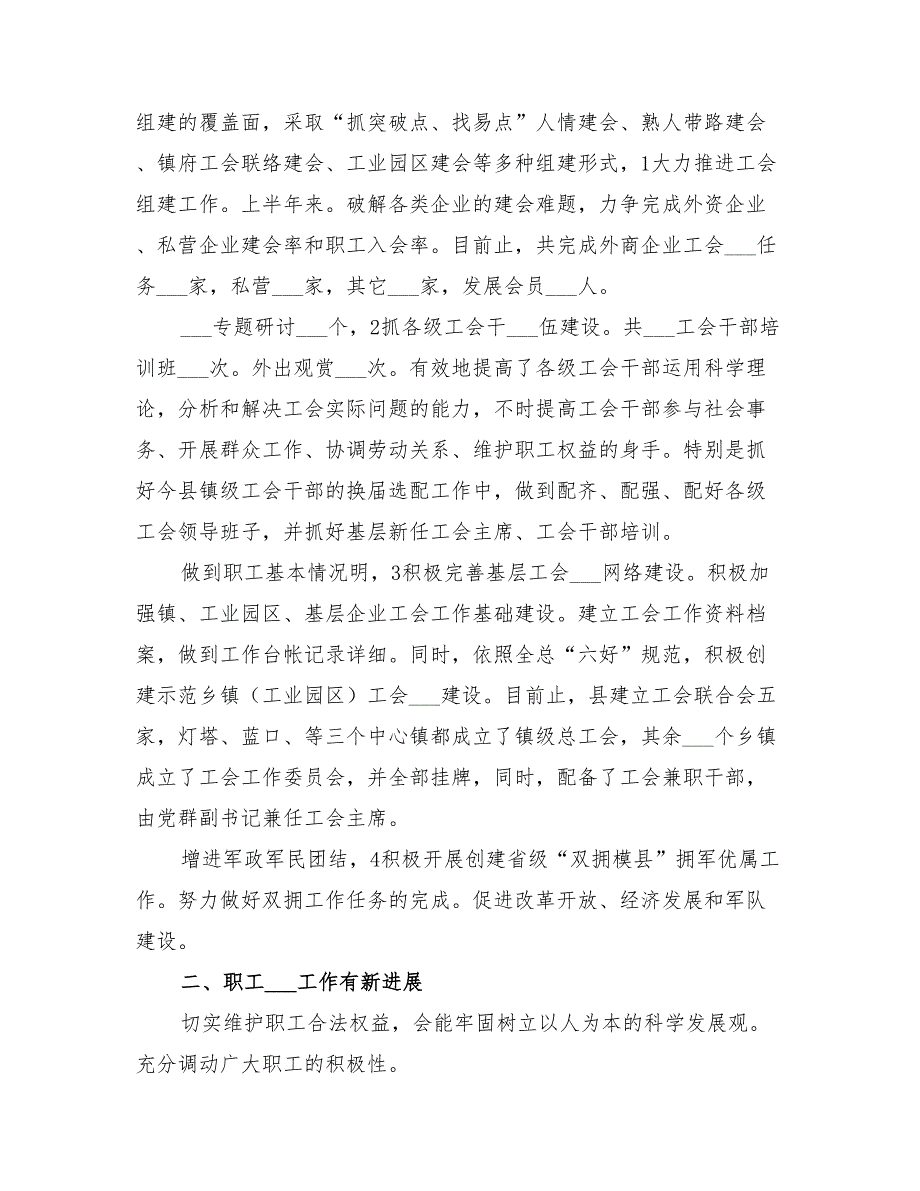 组建的覆盖面，采取“抓突破点、找易点”人情建会、熟人带路建会
、镇府工会联络建会、工业园区建会等多种组建形式，1大力推进工会
组建工作。上半年来。破解各类企业的建会难题，力争完成外资企业
、私营企业建会率和职工入会率。目前止，共完成外商企业工会___任
务___家，私营___家，其它___家，发展会员___人。
___专题研讨___个，2抓各级工会干___伍建设。共___工会干部培
训班___次。外出观赏___次。有效地提高了各级工会干部运用科学理
论，分析和解决工会实际问题的能力，不时提高工会干部参与社会事
务、开展群众工作、协调劳动关系、维护职工权益的身手。特别是抓
好今县镇级工会干部的换届选配工作中，做到配齐、配强、配好各级
工会领导班子，并抓好基层新任工会主席、工会干部培训。
做到职工基本情况明，3积极完善基层工会___网络建设。积极加
强镇、工业园区、基层企业工会工作基础建设。建立工会工作资料档
案，做到工作台帐记录详细。同时，依照全总“六好”规范，积极创
建示范乡镇（工业园区）工会___建设。目前止，县建立工会联合会五
家，灯塔、蓝口、等三个中心镇都成立了镇级总工会，其余___个乡镇
成立了工会工作委员会，并全部挂牌，同时，配备了工会兼职干部，
由党群副书记兼任工会主席。
增进军政军民团结，4积极开展创建省级“双拥模县”拥军优属工
作。努力做好双拥工作任务的完成。促进改革开放、经济发展和军队
建设。
二、职工___工作有新进展
切实维护职工合法权益，会能牢固树立以人为本的科学发展观。
充分调动广大职工的积极性。